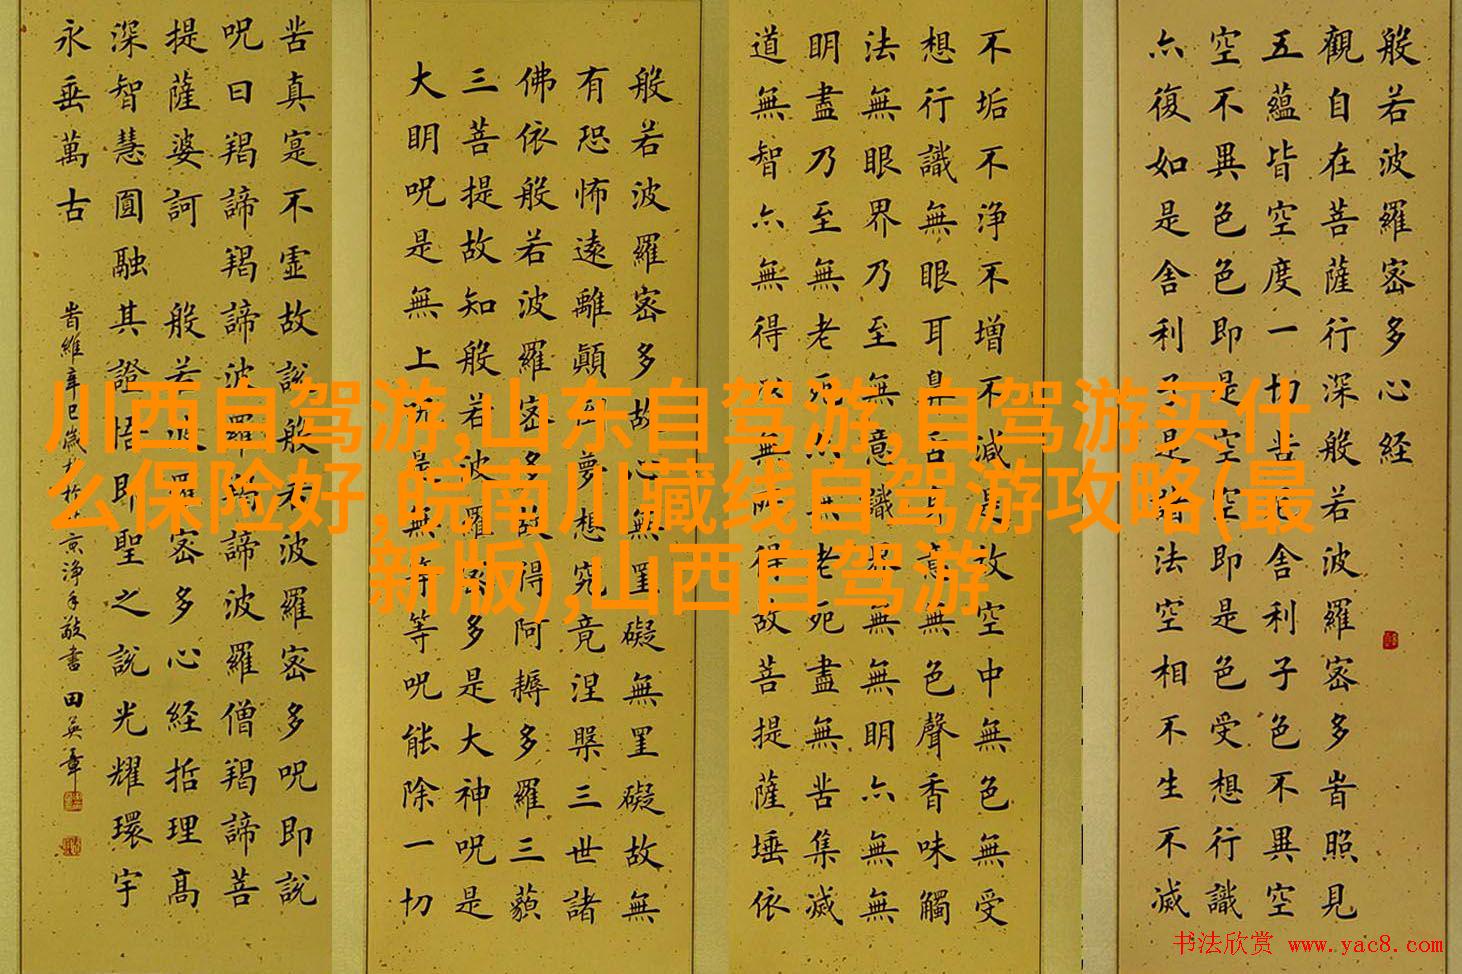 般若波羅密多心经
觀自在菩薩行深般若波羅密多峕照見
五蘊皆空度一切苦厄舍利子色不異空
空不異色色即是空空即是色受想行識
亦復如是舍利子是諸法空相不生不滅
不垢不浄不增不減是故空中無色無受
想行識無眼耳鼻舌身意無色聲香味觸
法無眼界乃至無意識界無無明亦無無
明盡乃至無老死亦無老死盡無苦集滅
道無智亦無得以無所得故菩提薩埵依
般若波羅密多故心無罣礙無罣礙故無
有恐怖遠離顛倒夢想究竟涅槃三世諸
佛依般若波羅密多故得阿耨多羅三藐
三菩提故知般若波羅密多是大神呪是
大明呪是無上呪是無等等呪能除一切
苦真寔不虛故說般若波羅密多呪即說
呪曰羯諦羯諦波羅羯諦波羅僧羯諦菩
提薩婆訶 般若波羅密多心経括理高
深智慧圓融其證悟即聖之說光耀環宇
永垂萬古
峕維辛巳歲京淨手敬書 田英章
川西自驾游,山东自驾游,自驾游买什
么保险好,皖南川藏线自驾游攻略(最
新版),山西自驾游
书法欣赏 www.yac8.com